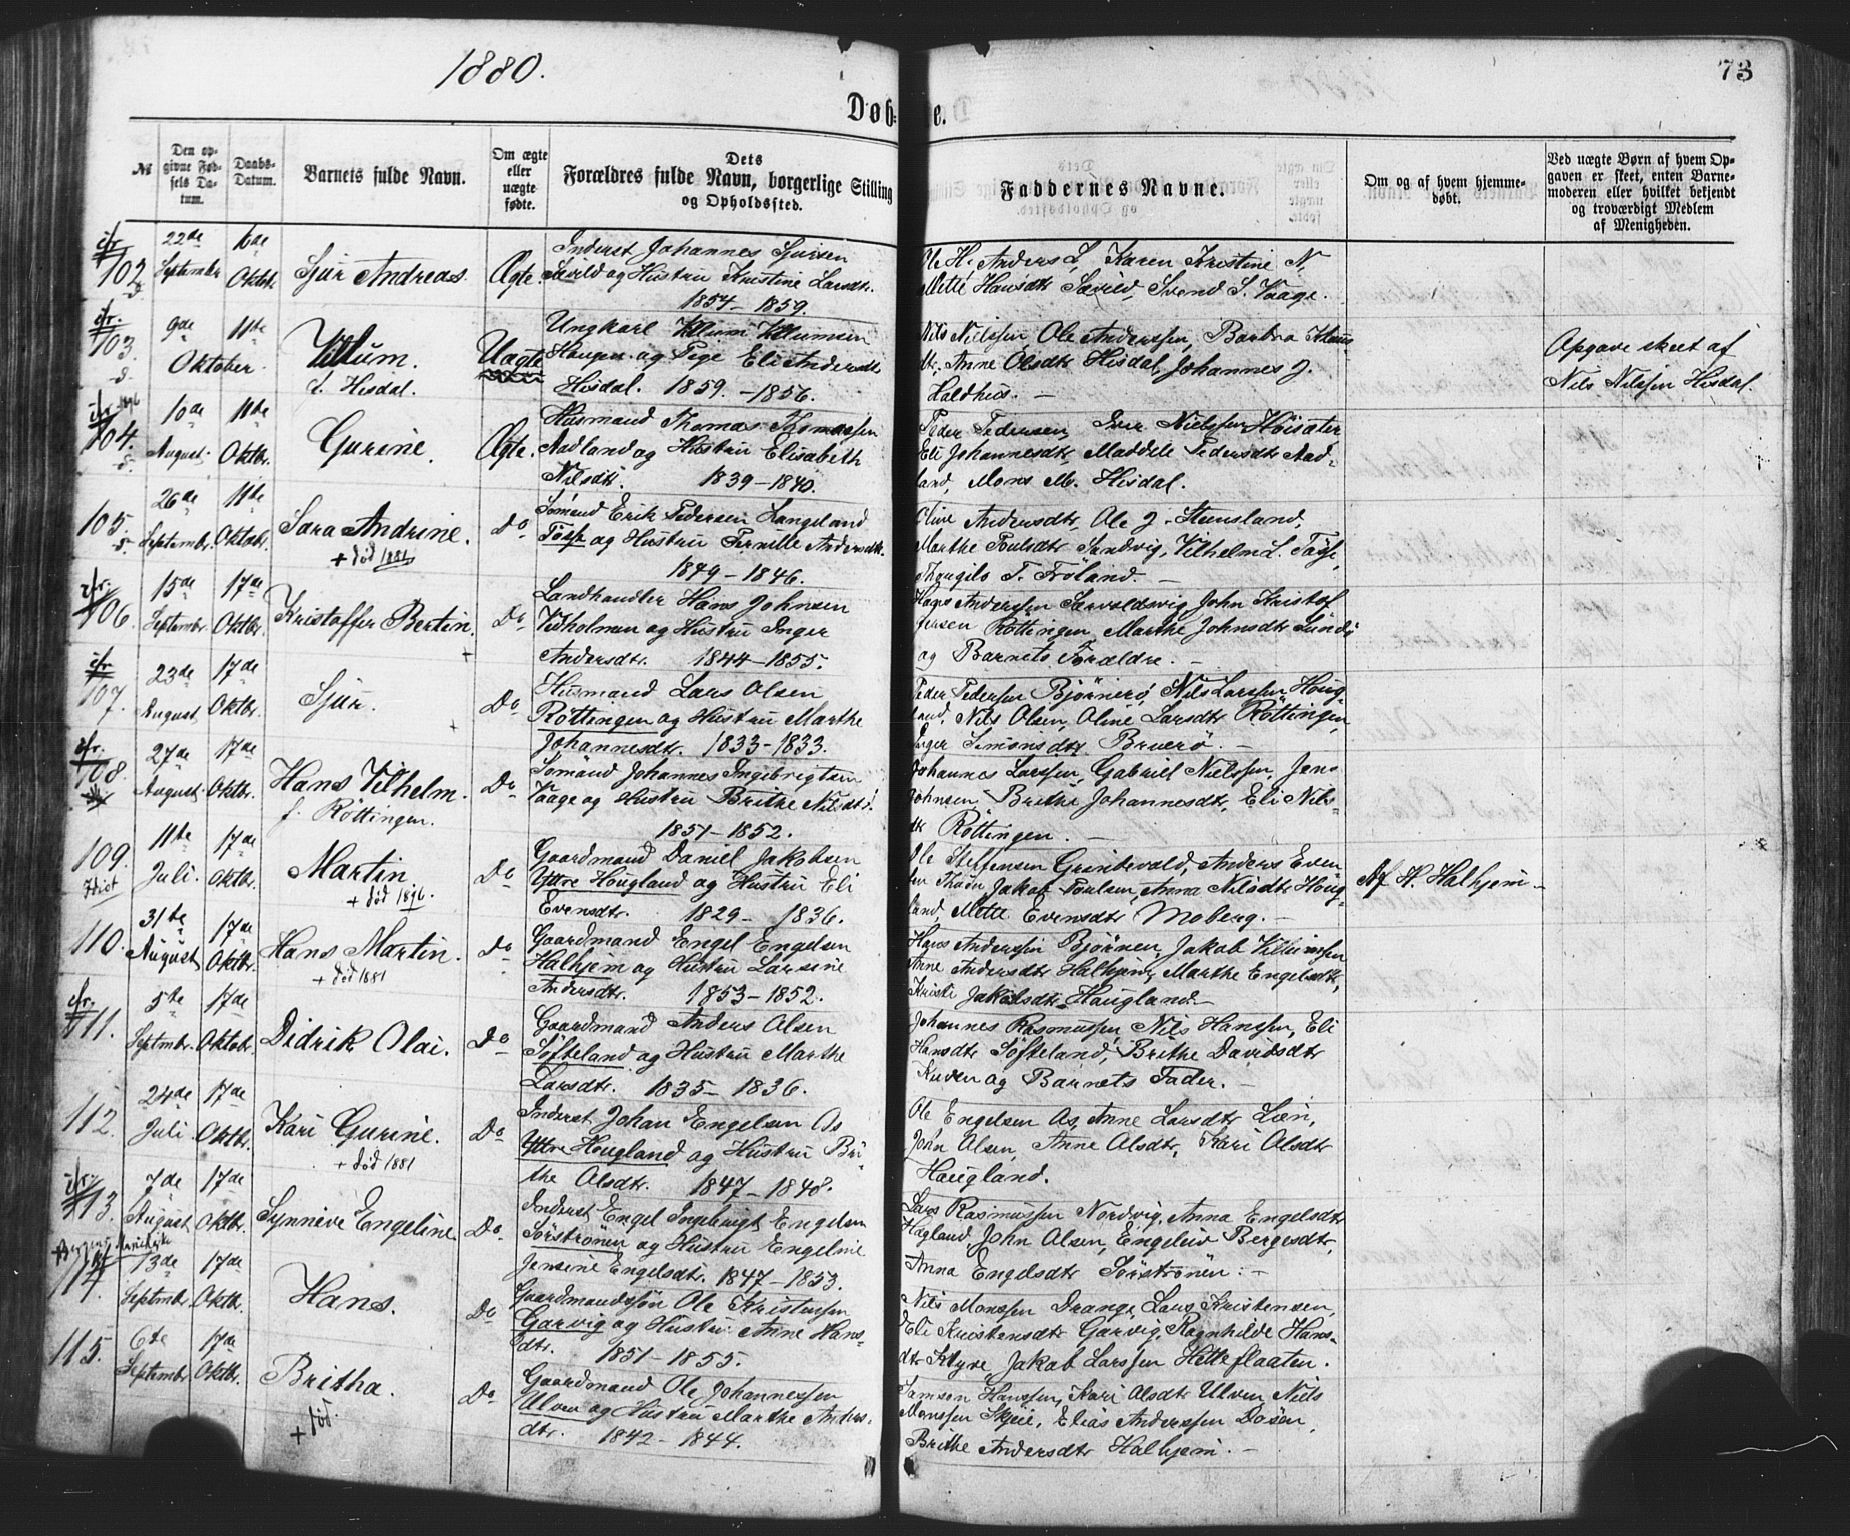 1880.
73
Døb-
te.
№
Den op-
givne Fød-
sels Da-
tum.
Daabs-
Datum.
Barnets fulde Navn.
Om ægte
eller
uægte
fødte.
Dets
Forældres fulde Navn, borgerlige Stilling
og Opholdssted.
Faddernes Navne.
Om og af hvem hjemme-
døbt.
Ved uægte Børn af hvem Op-
gaven er skeet, enten Barne-
moderen eller hvilket bekjendt
og troværdigt Medlem
af Menigheden.
102
22de Septembr
6de Oktbr.
Sjur Andreas.
Ægte.
Inderst Johannes Sjursen
Sævild og Hustru Kristine Larsdtr.
1854 - 1859.
Ole H. Anders L, Karen Kristine N,
Mette Hansdtr Sævild, Svend S. Vaage.
103.
9de Oktober.
11te
Villum.
f. Hisdal.
Uægte
Ungkarl Villum Villumsen
Haugen og Pige Eli Andersdtr
Hisdal. 1859. - 1856.
Nils Nielssen, Ole Anderssen, Barbra Klaus
dtr. Anne Olsdtr Hisdal, Johannes J.
Haldhus. -
Opgave skeet af
Nils Nilssen Hisdal.
104.
10de August.
11te Oktbr.
Gurine.
Ægte.
Husmand Thomas Thomassen
Aadland og Hustru Elisabeth
Nilsdtr. 1839 - 1840.
Peder Pedersen, Iver Nielssen Høisæter
Eli Johannesdtr, Maddele Pedersdtr Aad-
land, Mons M. Hisdal.
105.
26de Septembr.
11te Oktbr.
Sara Andrine.
+ død 1881
Do
Sømand Erik Pedersen Langeland
Tøsse og Hustru Pernille Andersdtr.
1849 - 1846.
Oline Andersdtr, Ole J. Stensland,
Marthe Poulsdtr Sandvig, Vilhelm L. Tøsse,
Thougils T. Frøland. -
106.
15de Septembr.
17de Oktbr.
Kristoffer Bertin.
Do
Landhandler Hans Johnsen
Vedholmen og Hustru Inger
Andersdtr. 1844 - 1855.
Hans Anderssen Sævoldsvig, John Kristof
fersen Røttingen, Marthe Johnsdtr Sundø
og Barnets Forældre. -
107.
23de August.
17de Oktbr.
Sjur.
Do
Husmand Lars Olsen
Røttingen og Hustru Marthe
Johannesdtr. 1833 - 1833.
Peder Pedersen Bjørnerø, Nils Larssen Houg-
land, Nils Olsen, Oline Larsdtr Røttingen,
Inger Simonsdtr Bruerø. -
108.
27de August.
17de Oktbr.
Hans Vilhelm.
f. Røttingen.
Do
Sømand Johannes Ingebrigtsen
Vaage og Hustru Brithe Nilsdtr.
1851 - 1852.
Johannes Larssen, Gabriel Nielssen, Jens
Johnsen, Brithe Johannesdtr, Eli Nils-
dtr Røttingen. -
109.
11te Juli.
17de Oktbr.
Martin
+ død 1896.
Do
Gaardmand Daniel Jakobsen
Yttre Hougland og Hustru Eli
Evensdtr. 1829 - 1836.
Ole Steffensen Grindevold, Anders Even
sen Thuen, Jakob Poulsen, Anna Nilsdtr Houg-
land, Mette Evensdtr Moberg. -
Af H. Halhjem -
110.
31te August
17de Oktbr.
Hans Martin.
+ død 1881
Do
Gaardmand Engel Engelsen
Halhjem og Hustru Larsine
Andersdtr. 1853 - 1852.
Hans Anderssen Bjørnen, Jakob Villumsen
Anne Andersdtr Halhjem, Marthe Engelsdtr,
Kristi Jakobsdtr Haugland -
111.
5te Septmbr.
17de Oktobr.
Didrik Olai.
Do
Gaardmand Anders Olsen
Søfteland og Hustru Marthe
Larsdtr. 1835 - 1836.
Johannes Rasmussen, Nils Hanssen, Eli
Hansdtr Søfteland, Brithe Davidsdtr
Kuven og Barnets Fader. -
112.
24de Juli.
17de Oktbr.
Kari Gurine.
+ død 1881
Do
Inderst Johan Engelsen Os
Yttre Hougland og Hustru Bri-
the Olsdtr. 1847 - 1848.
Ole Engelsen Os, Anne Larsdtr Lien,
John Olsen, Anne Olsdtr, Kari Olsdtr
Haugland.
113.
7de August
17de Oktbr.
Synneve Engeline.
Do.
Inderst Engel Ingebrigt Engelsen
Sørstrønen og Hustru Engeline
Jensine Engelsdtr. 1847 - 1853.
Lars Rasmussen Nordvig, Anna Engelsdtr
Hagland, John Olsen, Engelev Bergesdtr,
Anna Engelsdtr Sørstrønen. -
114.
13de Septmbr.
17de Oktbr.
Hans.
Do
Gaardmandssøn Ole Kristensen
Garvig og Hustru Anne Hans-
dtr. 1851 - 1855.
Nils Monssen Drange, Lars Kristensen,
Eli Kristensdtr Garvig, Ragnhilde Hans-
dtr Klyve, Jakob Larssen Hetleflaaten.
115.
6te Septmbr.
17de Oktbr.
Britha.
+ død.
Do
Gaardmand Ole Johannessen
Ulven og Hustru Marthe Anders-
dtr. 1842 - 1844.
Samson Hanssen, Kari Olsdtr Ulven, Niels
Monssen Skjeie, Elias Anderssen Døsen,
Brithe Andersdtr Halhjem. -